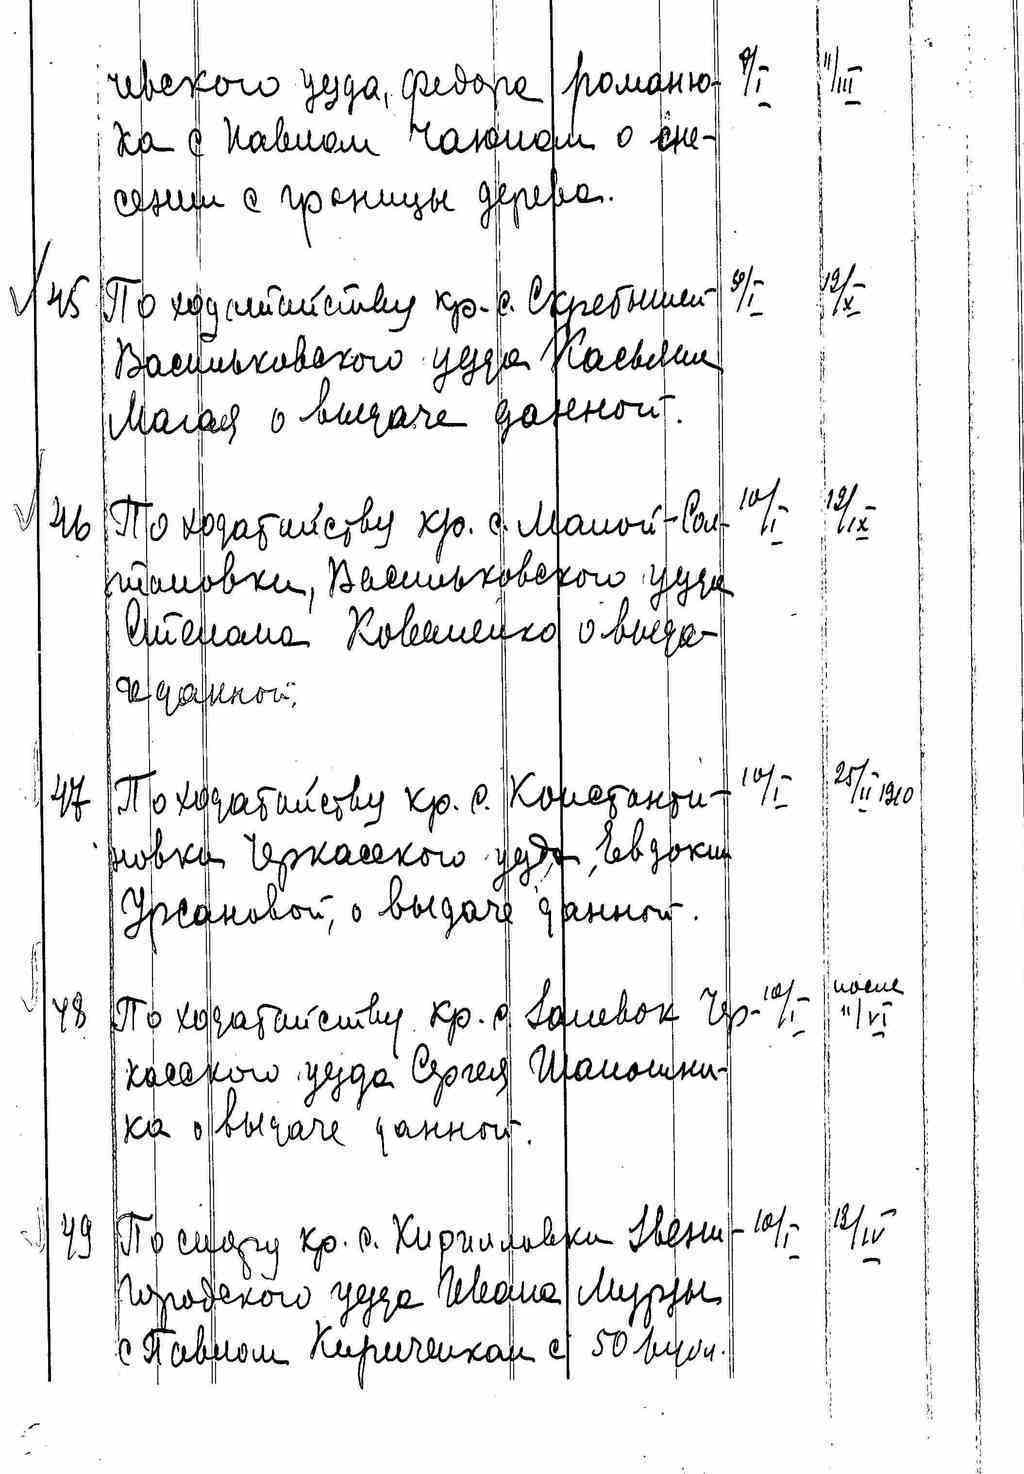 чевского уезда, Федора Романю- 9/I 11/III
ка с Павлом Чаюном о сне-
сении с границы дерева.
45 По ходатайству кр. с. Скребышей 9/I 12/X
Васильковского уезда Касьяна
Магая о выдаче данной.
46 По ходатайству кр. с. Малой-Сол- 10/I 12/IX
тановки, Васильковского уезда
Степана Коваленко о выда-
че данной.
47 По ходатайству кр. с. Константи- 10/I 25/II 1910
новки Черкасского уезда, Евдокии
Урсановой, о выдаче данной.
48 По ходатайству кр. с. Залевок Чер- 10/I после 11/VI
касского уезда Сергея Шапошни-
ка о выдаче данной.
49 По спору кр. с. Кирилловки Звени- 10/I 12/IV
городского уезда Ивана Мурзы
с Павлом Кириченком с 50